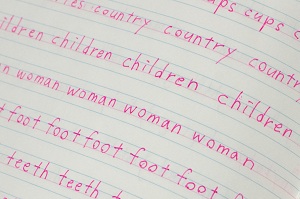 caps cups
country country country
children children children children
woman woman woman woman
foot foot foot foot foot foot
teeth teeth